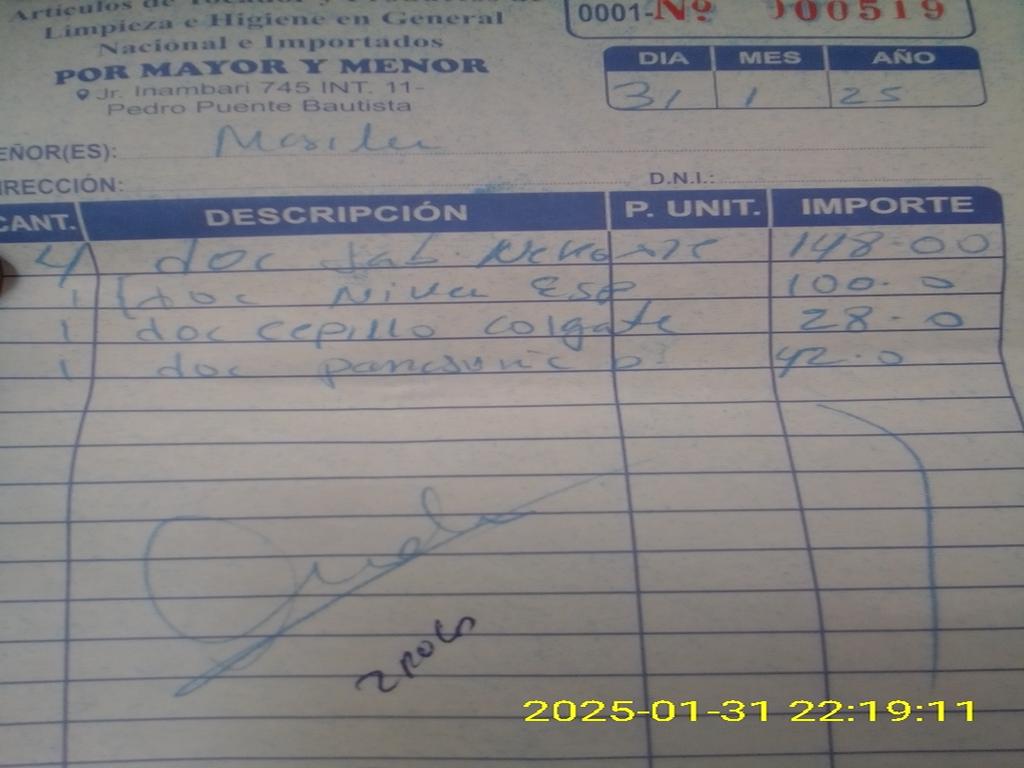 Artículos de Tocador y Productos de
Limpieza e Higiene en General
Nacional e Importados
POR MAYOR Y MENOR
Jr. Inambari 745 INT. 11-
Pedro Puente Bautista
0001-Nº 000519
DIA MES AÑO
31 1 25
EÑOR(ES):
IRECCIÓN: D.N.I.:
CANT. DESCRIPCIÓN P. UNIT. IMPORTE
4 doc Jab. 148.00
1 doc Nivea Esp 100.0
1 doc cepillo colgate 28.0
1 doc panasonic p. 42.0
2025-01-31 22:19:11